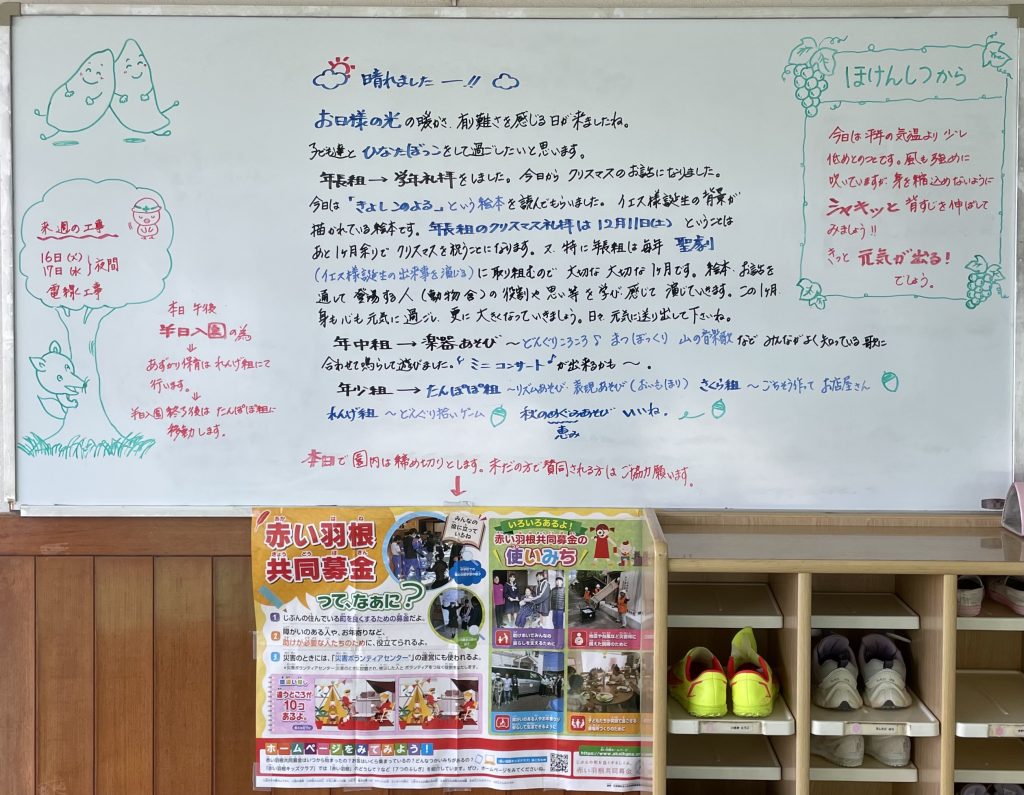 晴れましたー!!
お日様の光の暖かさ、有難さを感じる日が来ましたね。
子ども達と ひなたぼっこをして過ごしたいと思います。
年長組→学年礼拝をしました。今日から クリスマスのお話になりました。
今日は「きよしこのよる」という絵本を読んでもらいました。イエス様誕生の背景が
描かれている絵本です。年長組のクリスマス礼拝は12月11日(土) ということは
あと1ヶ月余りで クリスマスを祝うことになります。又、特に年長組は毎年 聖劇
(イエス様誕生の出来事を演じる)に取り組むので 大切な 大切な 1ヶ月です。絵本、お話を
通して 登場する人(動物含)の役割や 思い等を 学び、感じて 演じていきます。この1ヶ月、
身も心も元気に過ごし、更に 大きくなっていきましょう。日々、元気に送り出して下さいね。
年中組→楽器あそび〜どんぐりころころ♪ まつぼっくり 山の音楽歌 など みんながよく知っている歌に
合わせて鳴らして遊びました。ミニコンサート♪が出来るかも〜。
年少組→たんぽぽ組〜リズムあそび・表現あそび(おいもほり) さくら組〜ごちそう作って お店屋さん
れんげ組〜どんぐり拾いゲーム 秋のめぐみあそび いいね。
恵み
本日で園内は締め切りとします。まだの方で賛同される方は ご協力願います。
来週の工事
16日(火)
17日(水)
夜間
電線工事
本日 午後
半日入園の為
あずかり保育は れんげ組にて
行います。
半日入園終了後は たんぽぽ組に
移動します。
ほけんしつから
今日は平年の気温より 少し
低めとのことです。風も強めに
吹いていますが、身を縮込めないように
シャキッと 背すじを伸ばして
みましょう!!
きっと 元気が出る!
でしょう。
赤い羽根
共同募金
って、なぁに?
みんなの
役に立って
いるね
1 じぶんの住んでいる町を良くするための募金だよ。
2 障がいのある人や、お年寄りなど、
助けが必要な人たちのために、役立てられるよ。
3 災害のときには、「災害ボランティアセンター」の運営にも使われるよ。
違うところが
10コ
あるよ。
ホームページをみてみよう!
いろいろあるよ!
赤い羽根共同募金の
使いみち
赤い羽根共同募金